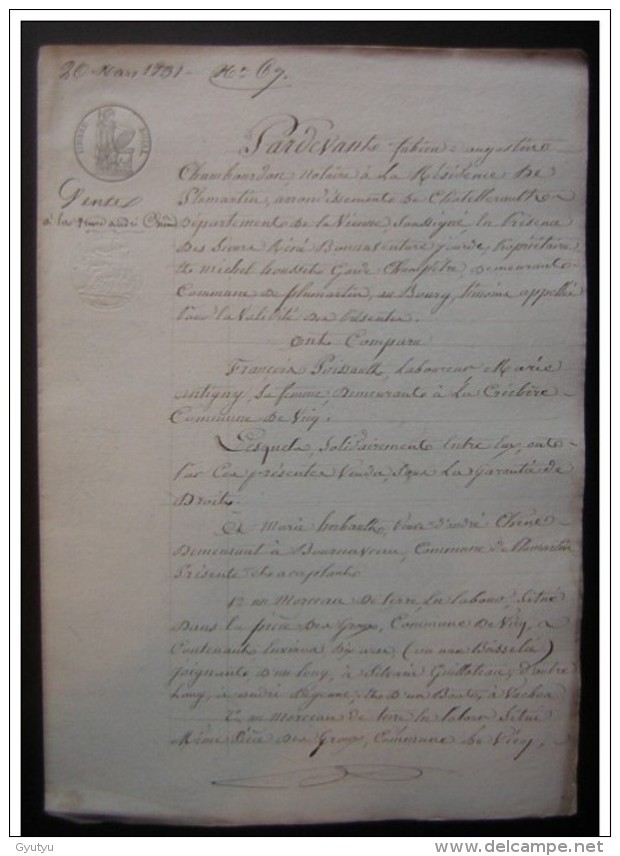 26 Mars 1831 - No. 67.
TIMBRE ROYAL
Vente
à la Veuve andré Chêne
Pardevant fabien augustin
Chambourdon notaire à La Résidence De
Plumartin, arrondissement de Chatellerault
Département De la Vienne, soussigné la présence
Des sieurs Réné Bonnaventure garde, propriétaire
Et michel housset Garde Champêtre, Demeurant
Commune De plumartin, au Bourg, témoins appellé
pour la Validité Des présentes.
ont Comparu
François Poissault, Laboureur Marie
antigny, sa femme, Demeurants à La
Commune De Vicq.
Lesquels, solidairement Entre Eux, ont
Par Ces présentes Vendu, sous La Garantie de
Droit.
à Marie, Veuve d'andré Chêne
Demeurant à, Commune De Plumartin
Présente et acceptante
1° un Morceau De terre En labour, Situé
Dans la pièce Des Groix, Commune De Vicq, a
Contenant Environ Dix ares, (ou une Boisselée)
joignant D'un long, à Silvain Guilloteau, D'autre
Long, à andré, Et D'un Bout, à
2° un morceau de terre En labour Situé
Même Pièce Des Groix, Commune De Vicq,
Gyutyu
www.delcampe.net